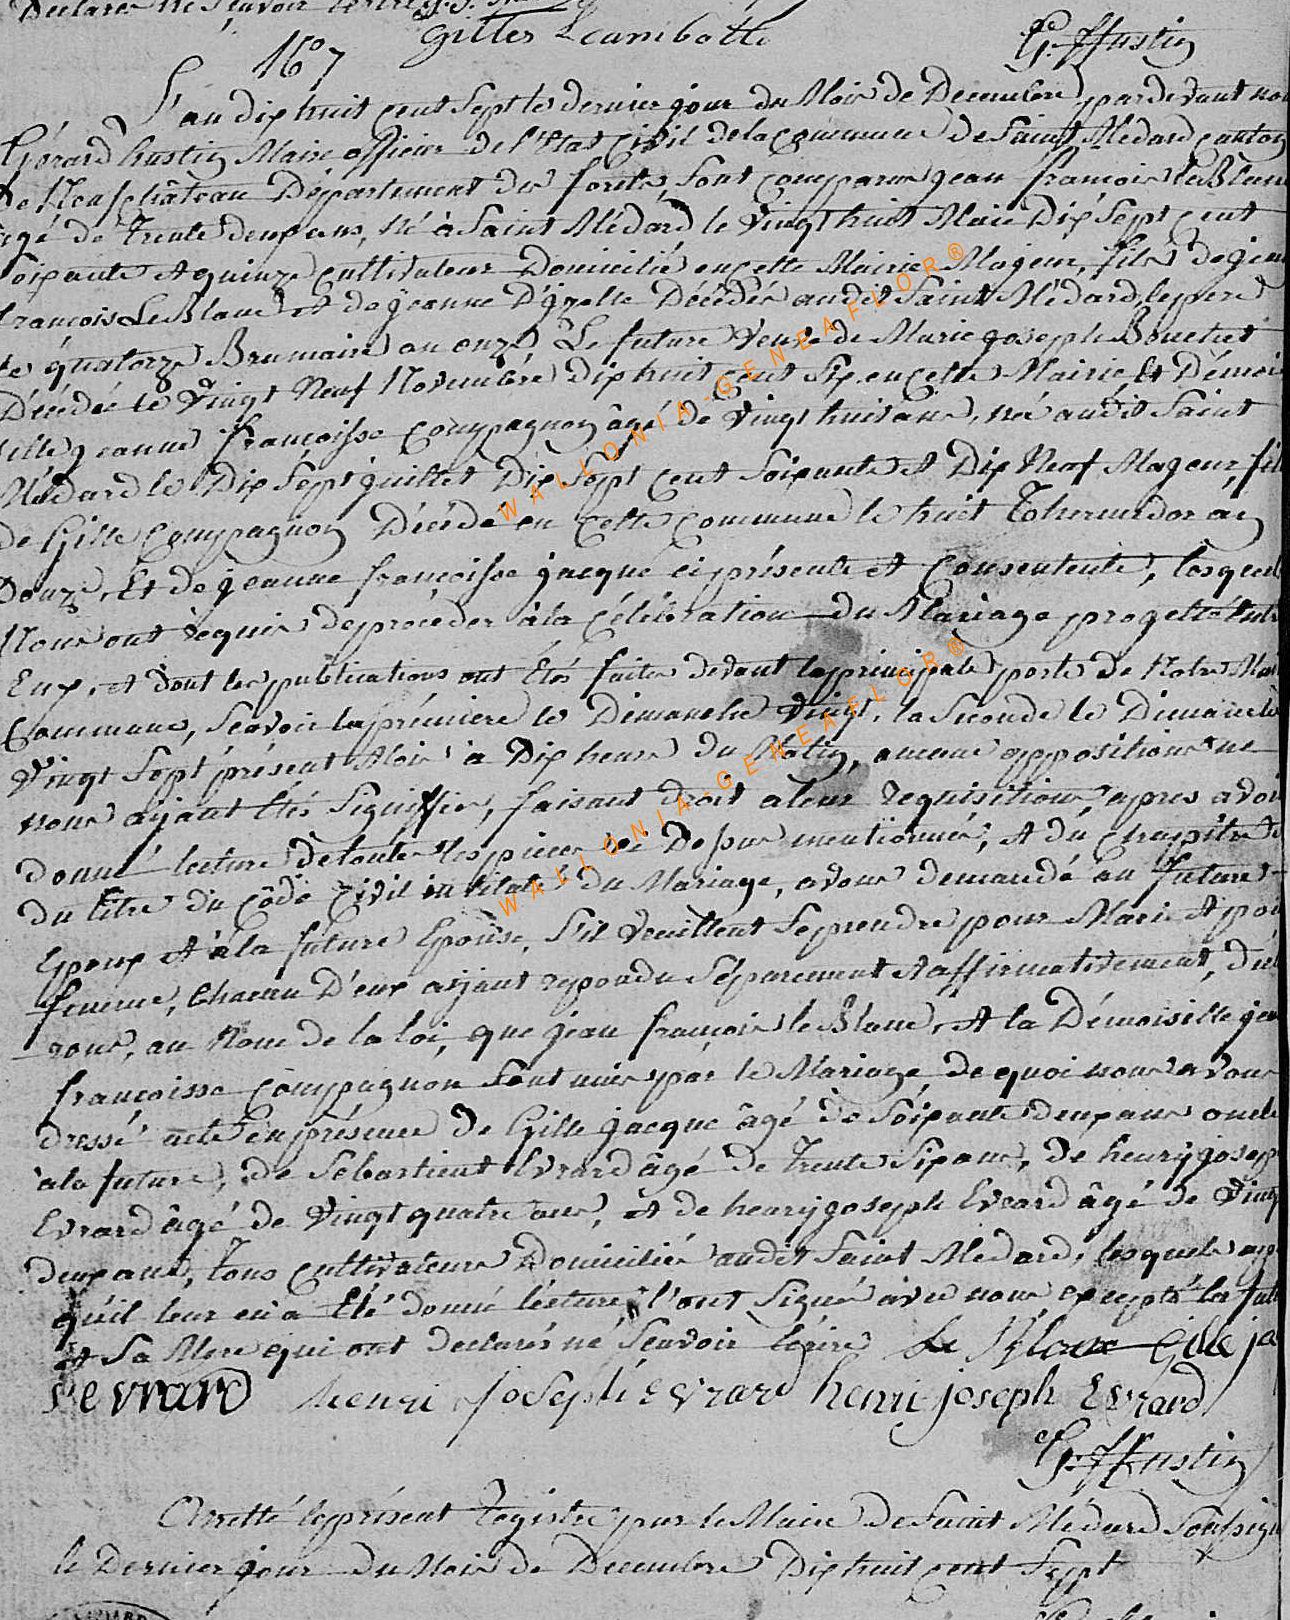 Declarés ne Scavoir Ecrire
Gilles Lcambotte G. Hustin
16° 7
L'an dix huit cent Sept le dernier jour du Mois de Decembre pardevant nou
Gérard hustin Maire officier de l'Etat Civil de la Commune de Saint Médard Canton
De Neufchâteau Département des forêts, Sont comparus jean françois le Blanc
agé de Trente deux ans, Né à Saint Médard le Vingt huit Mai Dix Sept cent
Soixante et quinze cultivateur Domicilié en cette Mairie, Majeur, fils de jean
françois Le Blanc et de jeanne D'gzelle Décédés audit Saint Médard, le pere
le quatorze Brumaire an onze, Le future Veuf de Marie joseph Bouchet
Décédée le Vingt Neuf Novembre dix huit cent Six en cette Mairie Et Démoi
selle jeanne françoisse Compagnon âgé de Vingt huit ans, née audit Saint
Médard le Dix Sept juillet Dix Sept cent Soixante et Dix Neuf Majeur, fil
de Gille Compagnon Décédé en cette commune le huit Thermidor an
Douze, Et de jeanne françoisse jacque ci présente et Consentente, lesquels
Nous ont requis de procéder à la Célébration du Mariage progetté Entre
Eux, et dont les publications ont Etés faites devant la principale porte de Notre Mais
Commune, Scavoir la prémiere le Dimanche Vingt, la Seconde le Dimanche
Vingt Sept présent Mois à Dix heures du Matin, aucune opposition ne
nous ayant Etés Signiffiés, faisant droit a leur requisition, apres avoir
donné lecture de toutes les pieces ci Dessus mentionnés, et du Chapitre 6
du titre du Côde Civil intitulé du Mariage, avons demandé au future
Epoux et à la future Epouse, S'il Veuillent Se prendre pour Mari et pour
femme, Chacun D'eux ayant repondu Séparement et affirmativement, décla
rons, au Nom de la loi, que jean françois le Blanc, et la Démoiselle jean
françoisse Compagnon Sont unis par le Mariage, de quoi nous avons
dressé acte en présence de Gille jacque âgé de Soixante deux ans oncle
à la future, de Sebastient Evrard âgé de Trente Six ans, de henry joseph
Evrard âgé de Vingt quatre ans, et de henry joseph Evrard âgé de Vingt
deux ans, Tous cultivateurs Domiciliés audit Saint Médard, lesquels aprè
qu'il leur en a Eté donné lecture l'ont Signé avec nous excepté la futu
et Sa Mere qui ont declarés né Scavoir Ecrire Le Blanc Gille ja
S evrard henri joseph evrard henri joseph Evrard
G. Hustin
Arretté le présent Registre par le Maire de Saint Médard Soussigné
le Dernier jour du Mois de Decembre Dix huit cent Sept
WALLONIA-GENEAFLOR®
WALLONIA-GENEAFLOR®